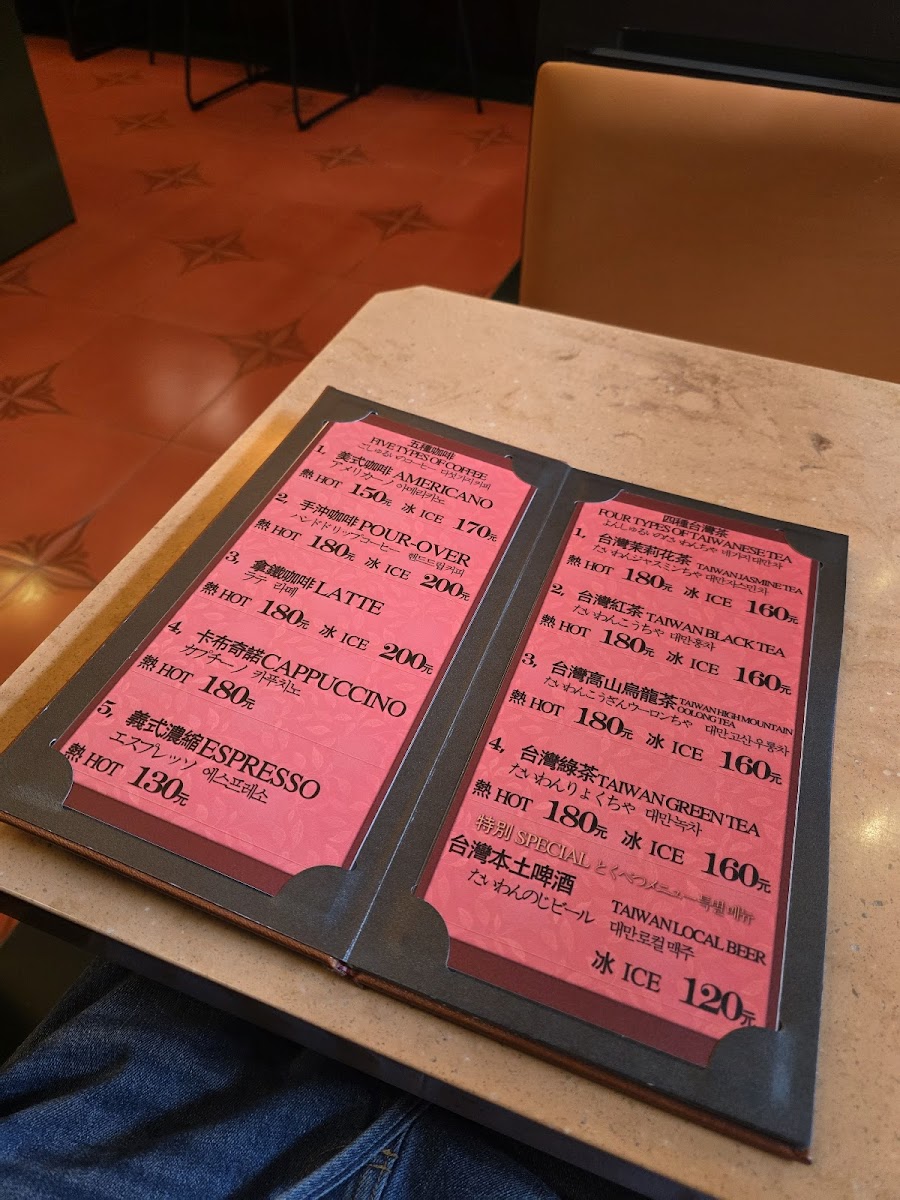 五種咖啡
FIVE TYPES OF COFFEE
ごしゅるいのコーヒー 다섯가지커피
1, 美式咖啡 AMERICANO
アメリカーノ 아메리카노
熱 HOT 150元 冰 ICE 170元
2, 手沖咖啡 POUR-OVER
ハンドドリップコーヒー 핸드드립커피
熱 HOT 180元 冰 ICE 200元
3, 拿鐵咖啡 LATTE
ラテ 라떼
熱 HOT 180元 冰 ICE 200元
4, 卡布奇諾 CAPPUCCINO
カプチーノ 카푸치노
熱 HOT 180元
5, 義式濃縮 ESPRESSO
エスプレッソ 에스프레소
熱 HOT 130元
四種台灣茶
FOUR TYPES OF TAIWANESE TEA
よんしゅるいのたいわんちゃ 네가지대만차
1, 台灣茉莉花茶 TAIWAN JASMINE TEA
たいわんジャスミンちゃ 대만자스민차
熱 HOT 180元 冰 ICE 160元
2, 台灣紅茶 TAIWAN BLACK TEA
たいわんこうちゃ 대만홍차
熱 HOT 180元 冰 ICE 160元
3, 台灣高山烏龍茶 TAIWAN HIGH MOUNTAIN OOLONG TEA
たいわんこうざんウーロンちゃ 대만고산우롱차
熱 HOT 180元 冰 ICE 160元
4, 台灣綠茶 TAIWAN GREEN TEA
たいわんりょくちゃ 대만녹차
熱 HOT 180元 冰 ICE 160元
特別 SPECIAL とくべつメニュー 특별 메뉴
台灣本土啤酒 TAIWAN LOCAL BEER
たいわんのじビール 대만로컬맥주
冰 ICE 120元